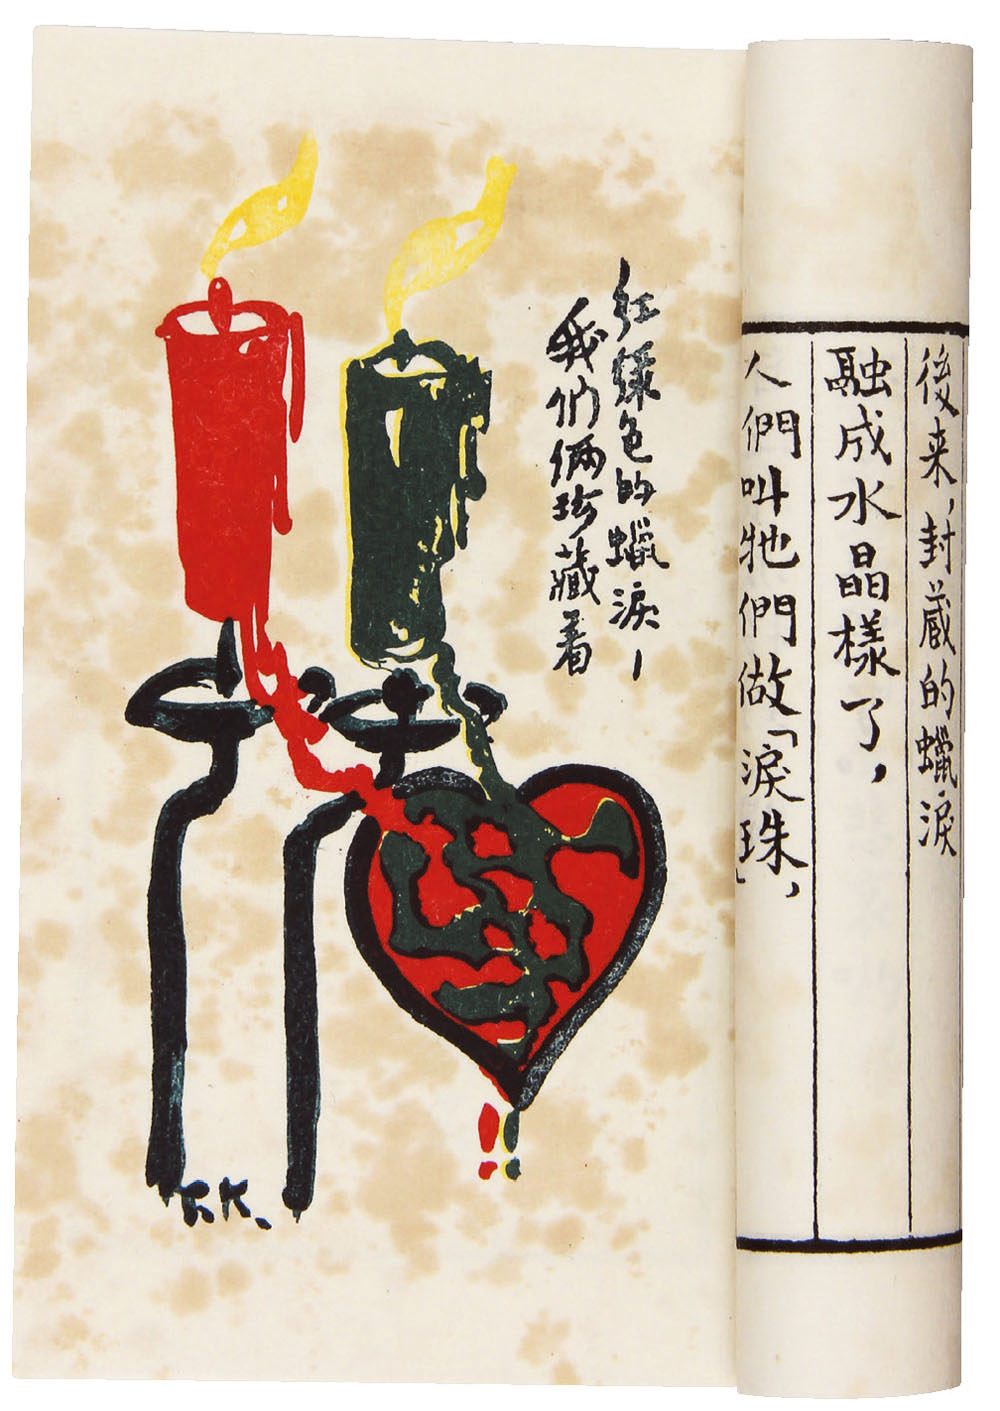 後来，封蔵的蠟淚
融成水晶樣了，
人們叫牠們做「淚珠」，
紅綠色的蠟淚—
我們倆珍藏着
K.K.